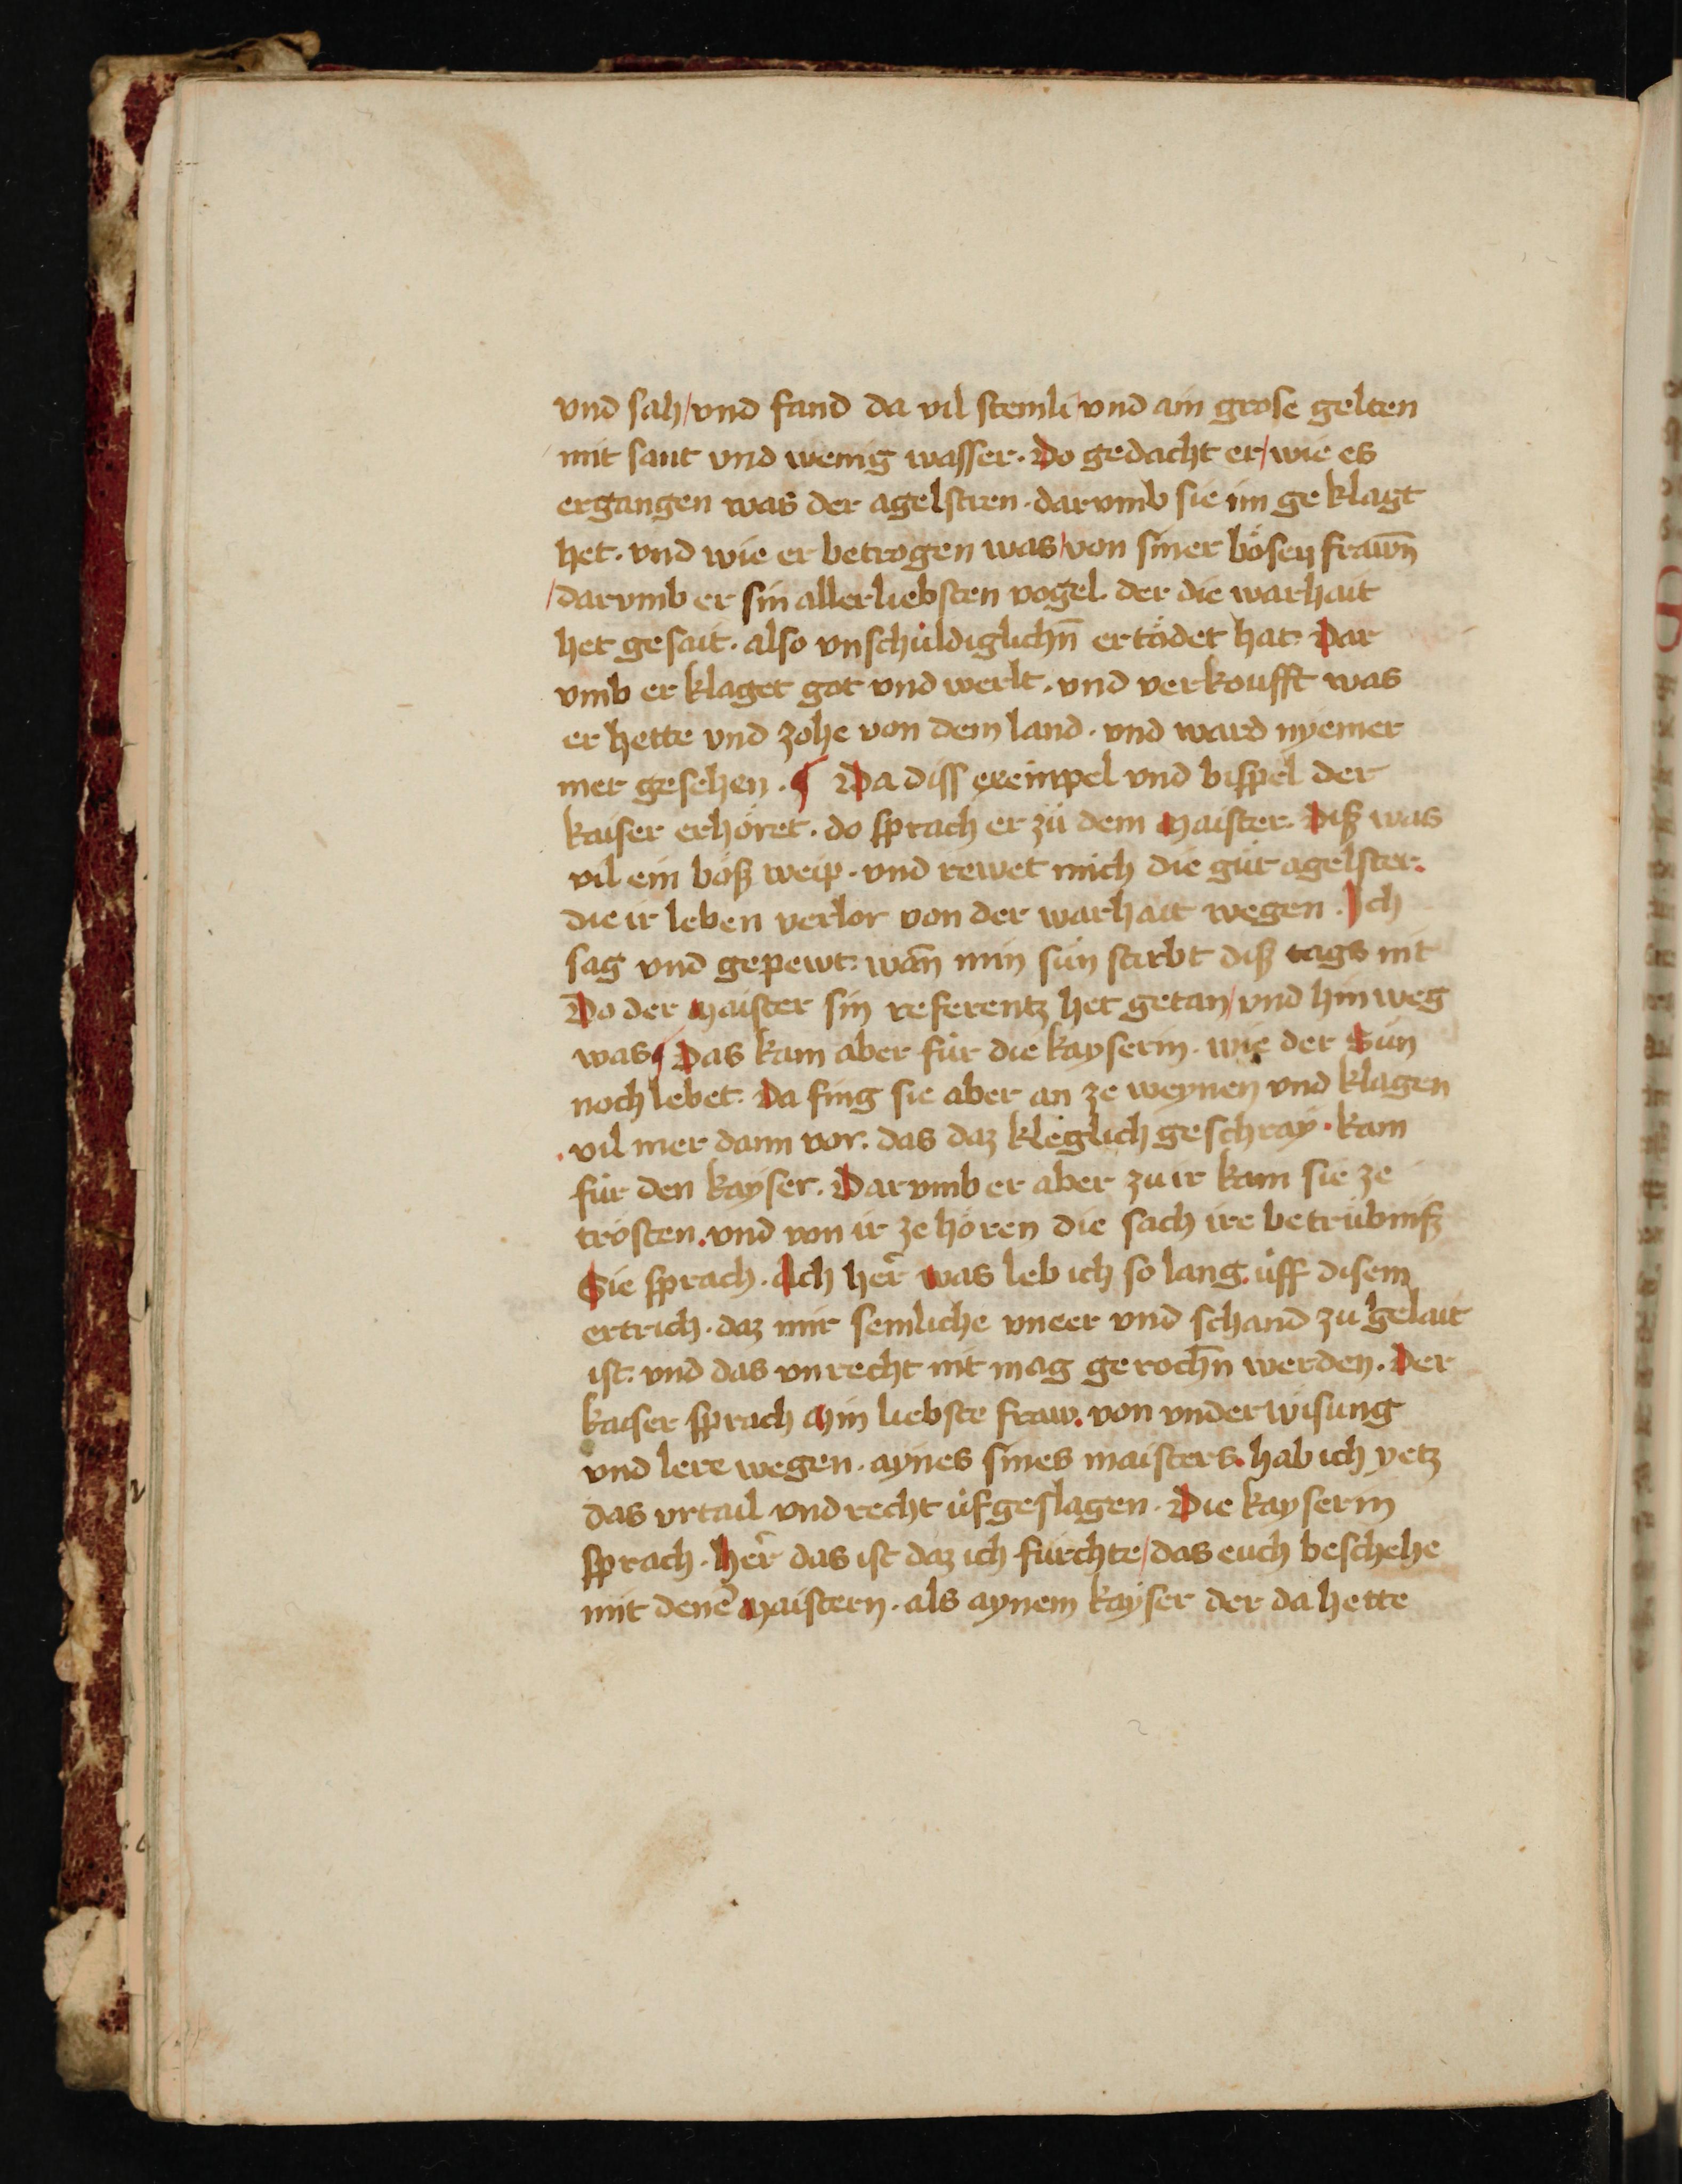 vnd sah/vnd fand da vil steinli/vnd ain grose gelten
mit sant vnd wenig wasser. Do gedacht er/wie es
ergangen was der agelstren. darvmb sie im ge klagt
het. vnd wie er betrogen was/von siner bösen frawn̄
/darvmb er sin allerliebsten vogel. der die warhait
het gesait. also vnschuldiglichn̄ ertödet hat. Dar
vmb er klaget got vnd werlt. vnd verkoufft was
er hette vnd zohe von dem land. vnd ward nyemer
mer gesehen. ¶ Da diss exeinpel vnd bispel der
kaiser erhöret. do sprach er zů dem Maister. Diß was
vil ein böß weip. vnd rewet mich die gůt agelster.
die ir leben verlor von der warhait wegen. Ich
sag vnd gepewt. wan̄ min sun stirbt diß tags nit
Do der Maister sin referentz het getan/vnd hin weg
was ¶ Das kam aber für die kayserin. wie der Sun
noch lebet. Da fing sie aber an ze weynen vnd klagen
.vil mer dann vor. das daz kleglich geschray. kam
für den kayser. Darvmb er aber zu ir kam sie ze
trösten.vnd von ir ze hören die sach ire betrübniß
Sie sprach. Ach her̄ was leb ich so lang. uff disem
ertrich. daz mir semliche vneer vnd schand zu gelait
ist. vnd das vnrecht nit mag gerochn̄ werden. Der
kaiser sprach Min liebste fraw. von vnderwisung
vnd lere wegen. aynes sines maisters. hab ich yetz
das vrtail vnd recht ufgeslagen. Die kayserin
sprach. Her̄ das ist daz ich fürchte/das euch beschehe
mit denē Maistern. als aynem kayser der da hette